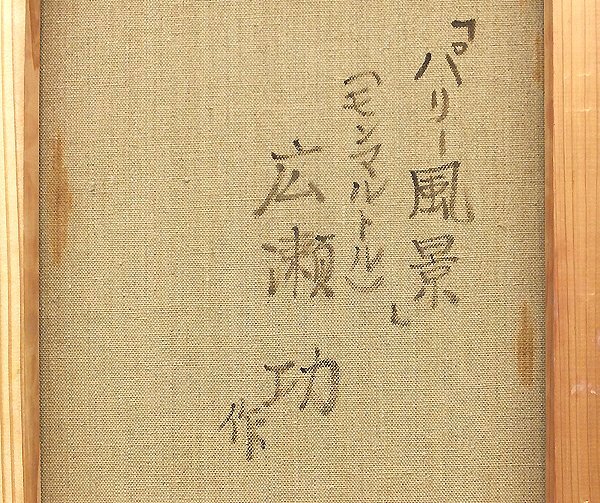 「パリー風景」
(モンマルトル)
広瀬功
作